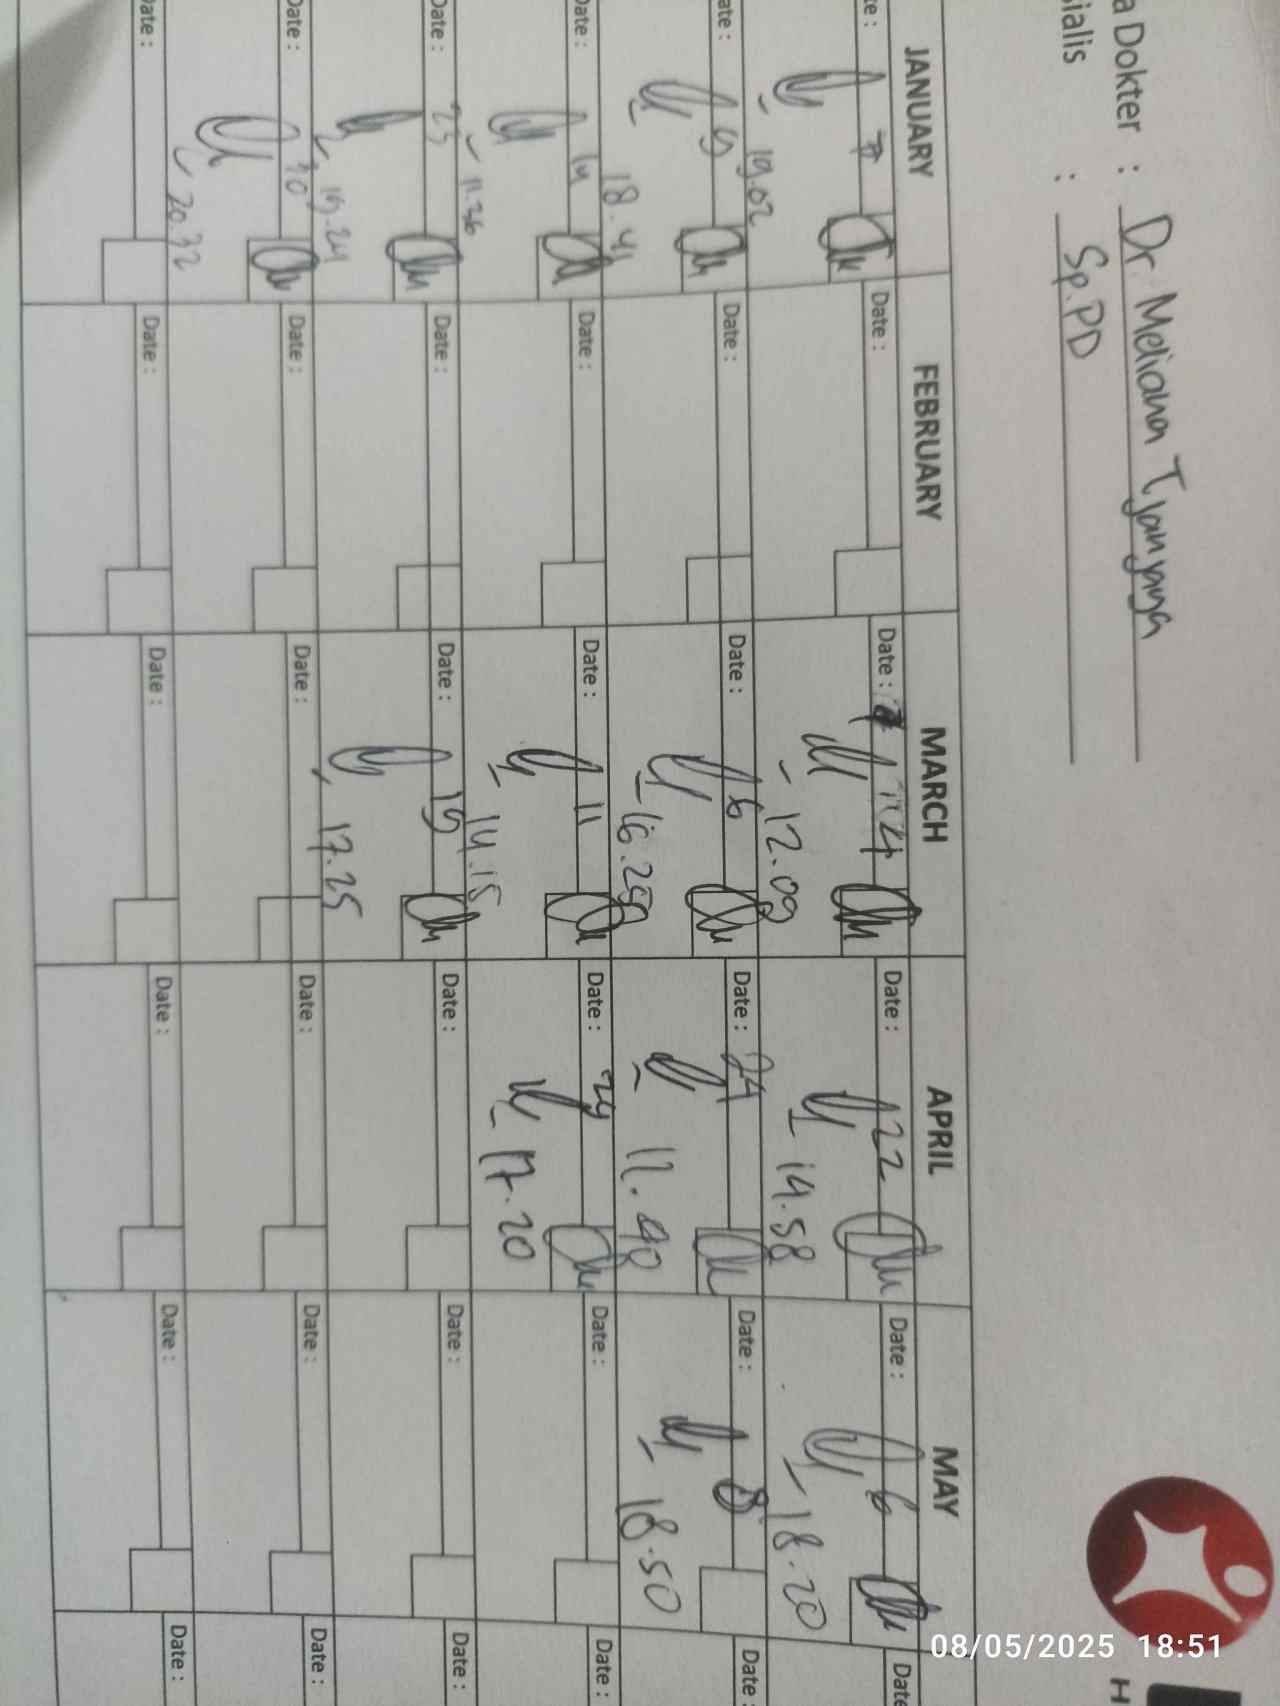 a Dokter : Dr. Meliana Tjanjaya
sialis : Sp.PD
JANUARY FEBRUARY MARCH APRIL MAY
te : 7 Date : Date : 4 Date : 22 Date : 6 Date
19.02 12.09 14.58 18.20
ate : 9 Date : Date : 6 Date : 24 Date : 8 Date :
18.41 16.25 11.40 18.50
Date : 14 Date : Date : 11 Date : 29 Date : Date :
11.36 14.15 17.20
Date : 23 Date : Date : 19 Date : Date : Date :
19.24 17.25
Date : 30 Date : Date : Date : Date : Date :
20.32
Date : Date : Date : Date : Date : Date :
H
08/05/2025 18:51